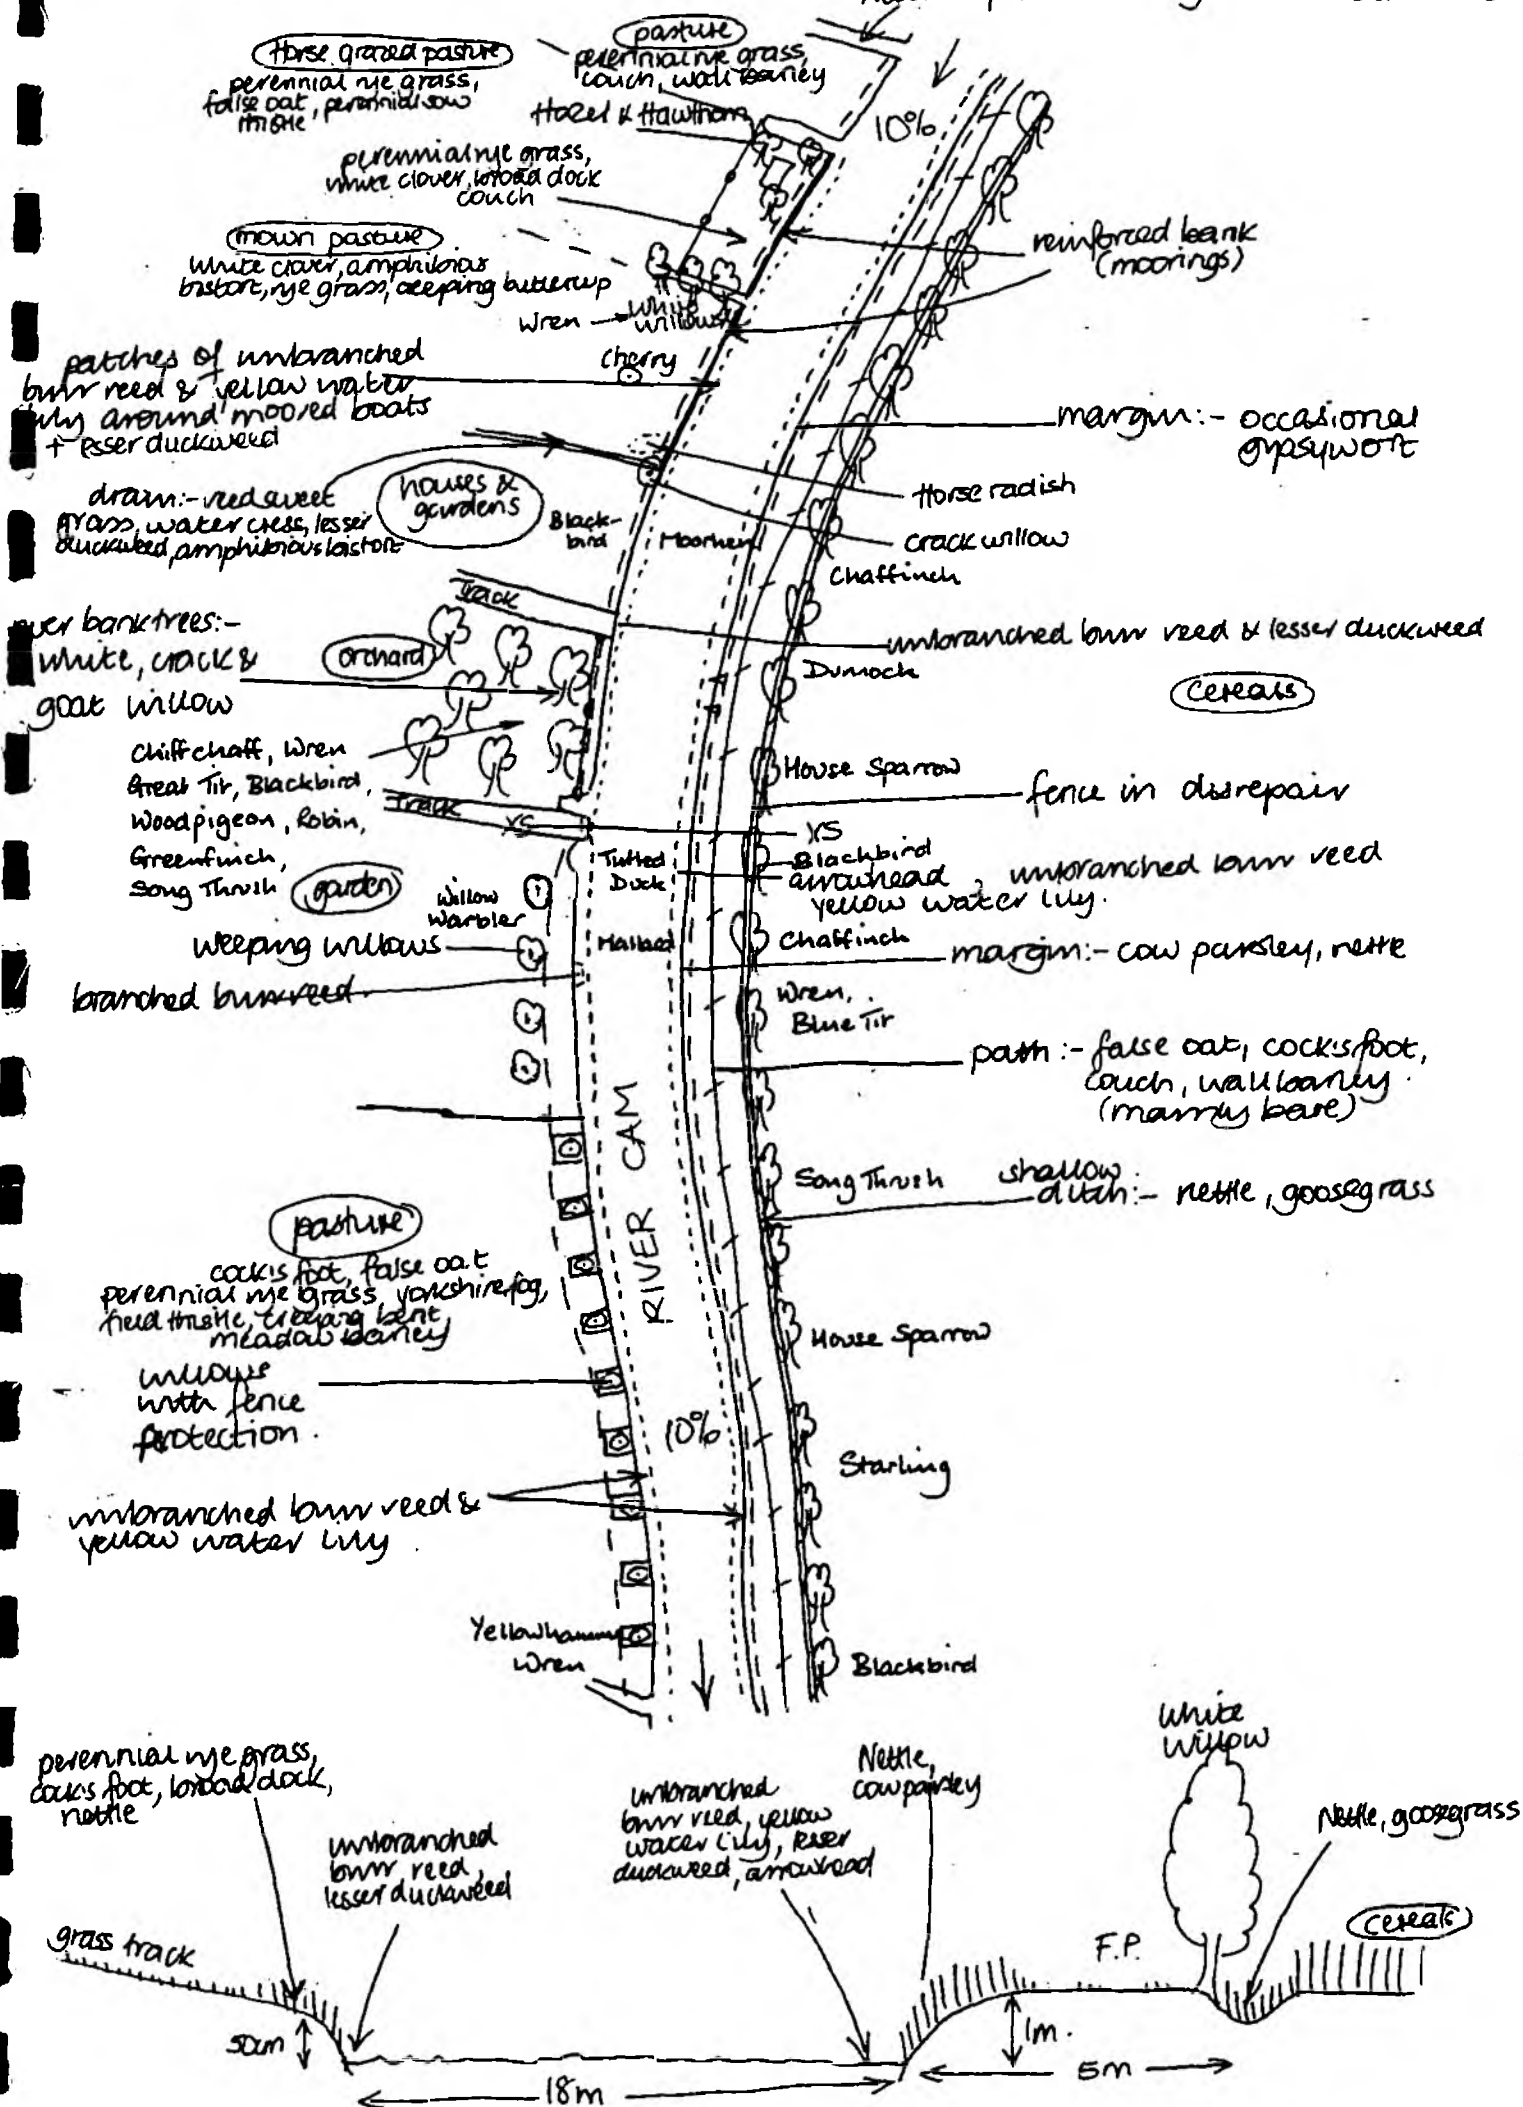 Horse grazed pasture
perennial rye grass,
false oat, perennial sow
thistle
pasture
perennial rye grass,
couch, wall barley
Hazel & Hawthorn
10%
perennial rye grass,
white clover, broad dock
couch
mown pasture
white clover, amphibious
bistort, rye grass, creeping buttercup
Wren
white
willows
reinforced bank
(moorings)
patches of unbranched
burr reed & yellow water
lily around moored boats
+ lesser duckweed
Cherry
margin:- occasional
gypsywort
drain:- reed sweet
grass, water cress, lesser
duckweed, amphibious bistort
houses &
gardens
Black-
bird
Moorhen
Horse radish
crack willow
Chaffinch
Track
unbranched burr reed & lesser duckweed
river bank trees:-
white, crack &
goat willow
orchard
Dunnock
cereals
Chiffchaff, Wren
Great Tit, Blackbird,
Woodpigeon, Robin,
Greenfinch,
Song Thrush
House Sparrow
fence in disrepair
Track
XS
XS
garden
Willow
Warbler
Tufted
Duck
Blackbird
arrowhead, unbranched burr reed
yellow water lily.
weeping willows
Mallard
Chaffinch
margin:- cow parsley, nettle
branched burr reed
Wren,
Blue Tit
path:- false oat, cocksfoot,
couch, wall barley.
(mainly bare)
RIVER CAM
Song Thrush
shallow
ditch:- nettle, goosegrass
pasture
cocks foot, false oat
perennial rye grass, yorkshire fog,
field thistle, creeping bent,
meadow barley
House Sparrow
willows
with fence
protection.
10%
Starling
unbranched burr reed &
yellow water lily.
Yellowhammer
Wren
Blackbird
perennial rye grass,
cocks foot, broad dock,
nettle
unbranched
burr reed,
lesser duckweed
unbranched
burr reed, yellow
water lily, lesser
duckweed, arrowhead
Nettle,
cow parsley
White
Willow
Nettle, goosegrass
cereals
grass track
F.P.
50cm
1m.
18m
5m